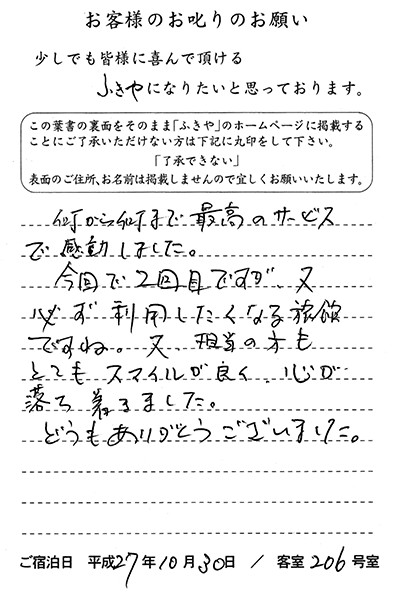 お客様のお叱りのお願い
少しでも皆様に喜んで頂ける
ふきやになりたいと思っております。
この葉書の裏面をそのまま「ふきや」のホームページに掲載する
ことにご了承いただけない方は下記に丸印をして下さい。
「了承できない」
表面のご住所、お名前は掲載しませんので宜しくお願いいたします。
何から何まで最高のサービス
で感動しました。
今回で2回目ですが、又
必ず利用したくなる旅館
ですね。又、担当の方も
とてもスマイルが良く、心が
落ち着きました。
どうもありがとうございました。
ご宿泊日 平成27年10月30日 / 客室206号室